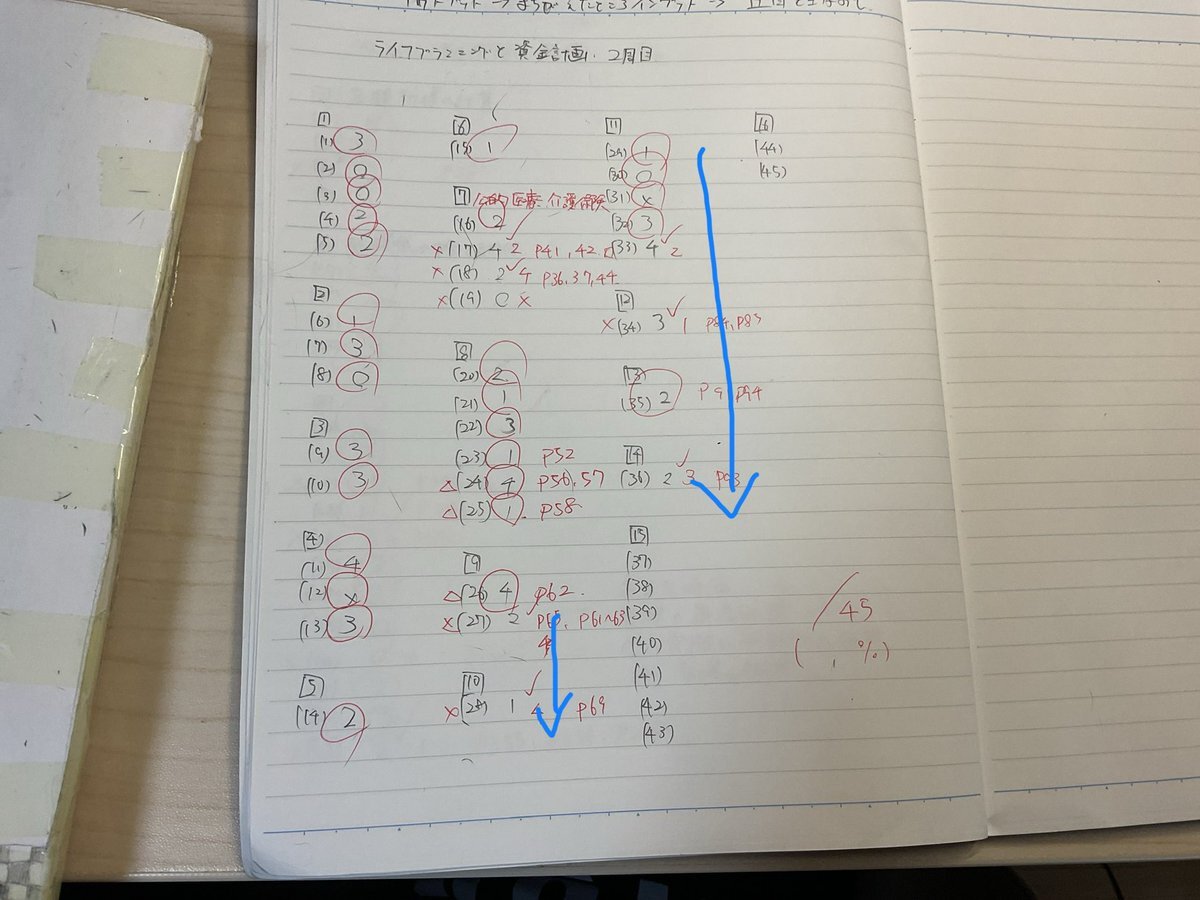 ライフプランニングと資金計画. 2周目
1
(1) 3
(2) ○
(3) ○
(4) 2
(5) 2
2
(6) 1
(7) 3
(8) ○
3
(9) 3
(10) 3
4
(11) 4
(12) ×
(13) 3
5
(14) 2
6
(15) 1
7 公的医療・介護保険
(16) 2
×(17) 4 2 P41, 42.
×(18) 2 4 P36, 37, 44
×(19) ○ ×
8
(20) 2
(21) 1
(22) 3
(23) 1 P52
△(24) 4 P56, 57
△(25) 1 P58
9
△(26) 4 P62
×(27) 2 P61~63
10
×(28) 1 4 P69
11
(29) 1
(30) ○
(31) ×
(32) 3
(33) 4 2
12
×(34) 3 1
13
(35) 2 P94
14
(36) 2 3
15
(37)
(38)
(39)
(40)
(41)
(42)
(43)
16
(44)
(45)
/45
( . %)